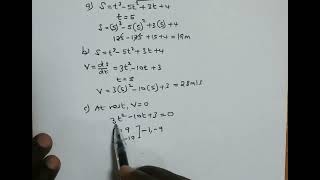 a) S = t³ - 5t² + 3t + 4
t = 5
S = (5)³ - 5(5)² + 3(5) + 4
125 - 125 + 15 + 4 = 19m
b) S = t³ - 5t² + 3t + 4
V = ds/dt = 3t² - 10t + 3
t = 5
V = 3(5)² - 10(5) + 3 = 28m/s
c) At rest, V = 0
3t² - 10t + 3 = 0
9
-10 ] -1, -9